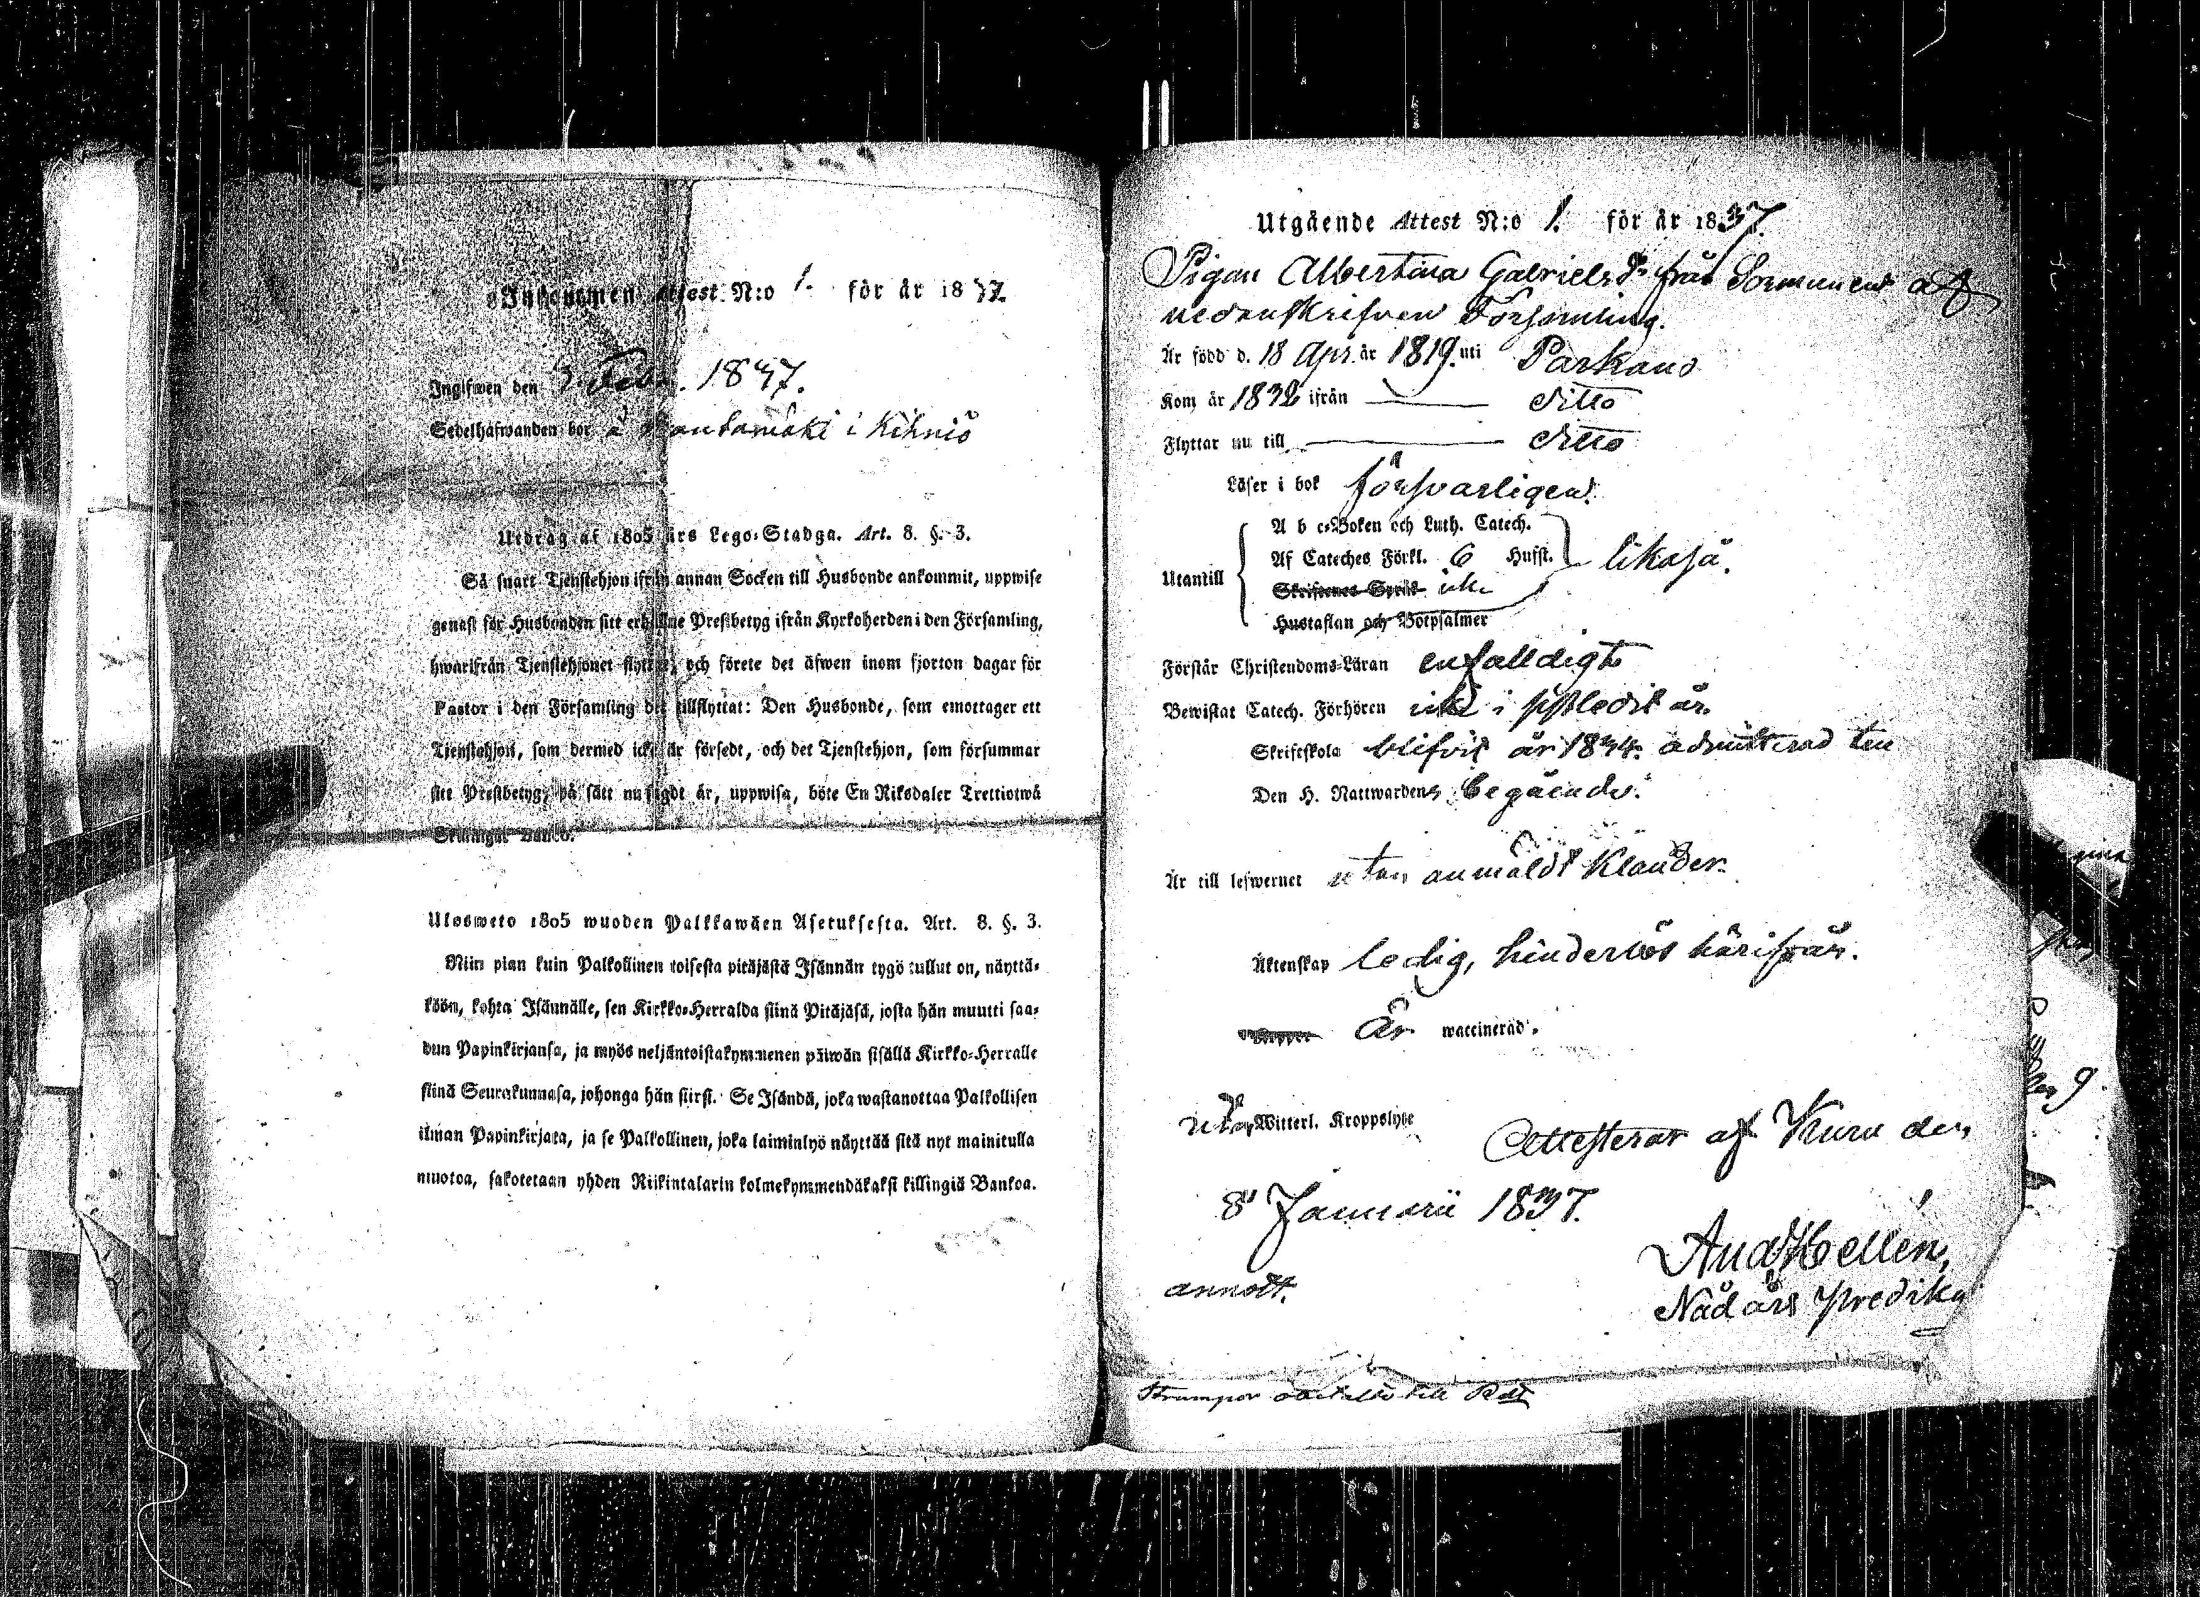 Inkommen Attest N:o 1. för år 1837.
Ingifwen den 3 Febr. 1837.
Sedelhafwanden bor å Rantamäki i Kihniö
Utdrag af 1805 års Lego-Stadga. Art. 8. §. 3.
Så snart Tjenstehjon ifrån annan Socken till Husbonde ankommit, uppwise
genast för Husbonden sitt erhållne Prestbetyg ifrån Kyrkoherden i den Församling,
hwarifrån Tjenstehjonet flyttat, och förete det äfwen inom fjorton dagar för
Pastor i den Församling det tillflyttat: Den Husbonde, som emottager ett
Tjenstehjon, som dermed icke är försedt, och det Tjenstehjon, som försummar
sitt Prestbetyg, på sätt nu sagdt är, uppwisa, böte En Riksdaler Trettiotwå
Skillingar Banco.
Ulosweto 1805 wuoden Palkkawäen Asetuksesta. Art. 8. §. 3.
Niin pian kuin Palkollinen toisesta pitäjästä Isännän tygö tullut on, näyttä-
köön, kohta Isännälle, sen Kirkko-Herralda siinä Pitäjäsä, josta hän muutti saa-
dun Papinkirjansa, ja myös neljäntoistakymmenen päiwän sisällä Kirkko-Herralle
siinä Seurakunnasa, johonga hän siirsi. Se Isändä, joka wastanottaa Palkollisen
ilman Papinkirjata, ja se Palkollinen, joka laiminlyö näyttää sitä nyt mainitulla
muotoa, sakotetaan yhden Riikintalarin kolmekymmendäkaksi killingiä Bankoa.
Utgående Attest N:o 1. för år 1837.
Pigan Albertina Gabrielsdr från Sormunen af
nedanskrifven Församling.
Är född d. 18 Apr. år 1819. uti Parkano
Kom år 1832 ifrån ditto
Flyttar nu till ditto
Läser i bok försvarligen.
A b c-Boken och Luth. Catech.
Utantill Af Cateches Förkl. 6 Hufst. likaså.
Skriftenes Språk icke
Hustaflan och Botpsalmer
Förstår Christendoms-Läran enfalldigt
Bewistat Catech. Förhören icke i sistledit år.
Skriftskola blifvit år 1834. admitterad ten
Den H. Nattwardens begående.
Är till lefwernet utan anmäldt klander.
Äktenskap ledig, hinderlös härifrån.
Är waccinerad.
utan Witterl. Kroppslyte
Attesterar af Kuru den
8 Januarii 1837.
And Hellén,
Nådårs predik.
annott.
Strumpor